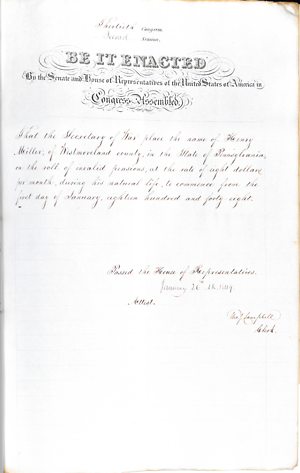 Thirtieth Congress
Second Session
BE IT ENACTED
By the Senate and House of Representatives of the United States of America in
Congress Assembled
That the Secretary of War place the name of Henry
Miller, of Westmoreland county, in the State of Pennsylvania,
on the roll of invalid pensions, at the rate of eight dollars
per month, during his natural life, to commence from the
first day of January, eighteen hundred and forty eight.
Passed the House of Representatives.
January 26th 1849.
Attest.
Campbell
Clerk